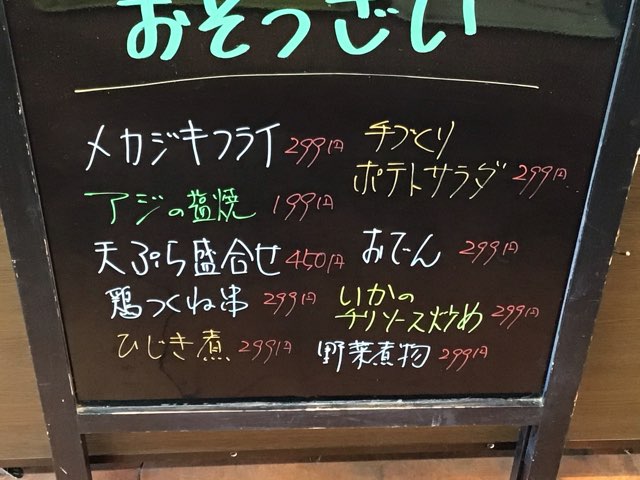 おそうざい
メカジキフライ 299円
アジの塩焼 199円
天ぷら盛合せ 450円
鶏つくね串 299円
ひじき煮 299円
手づくり
ポテトサラダ 299円
おでん 299円
いかの
チリソース炒め 299円
野菜煮物 299円